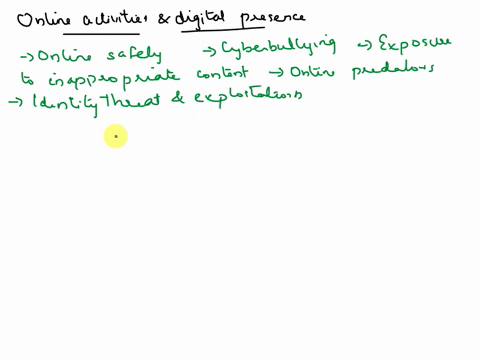 Online activities & digital presence
→ Online safely → Cyberbullying → Exposure
to inappropriate content → Online predators
→ Identity Threat & exploitations